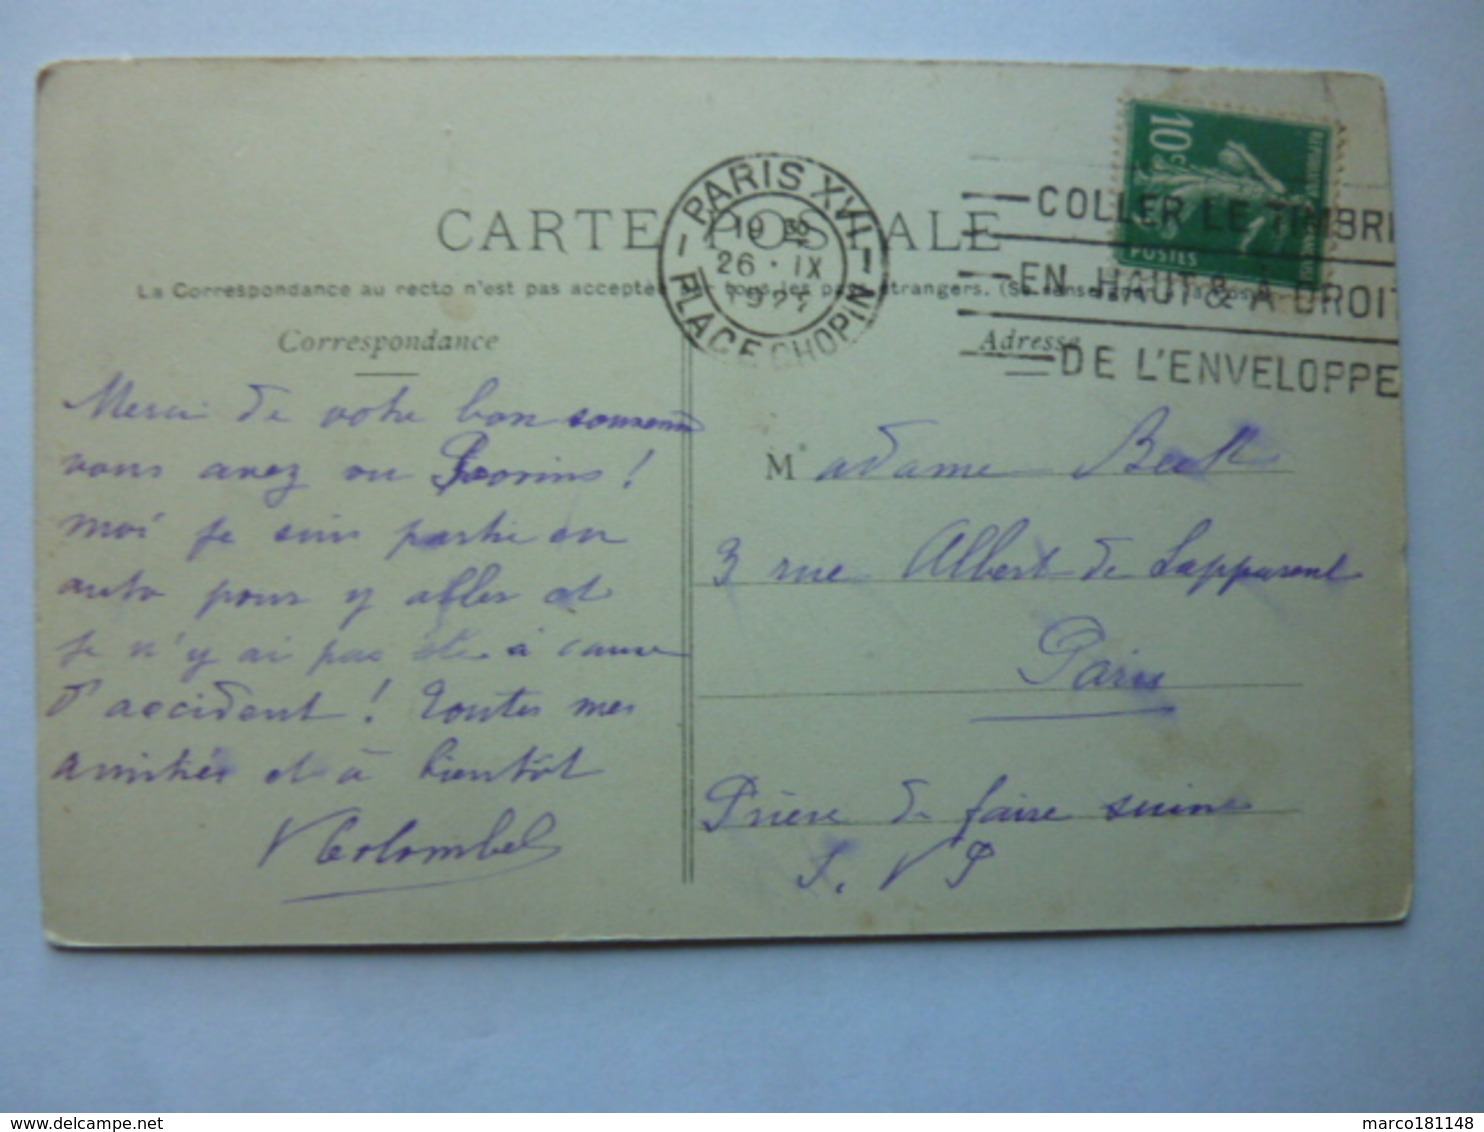 CARTE POSTALE
La Correspondance au recto n'est pas acceptée par tous les pays étrangers. (Se renseigner à la Poste)
PARIS XVII
19 H
26 · IX
PLACE CHOPIN
10c
POSTES
COLLER LE TIMBRE
EN HAUT & À DROITE
DE L'ENVELOPPE
Correspondance
Merci de votre bon souvenir
vous avez vu Provins !
moi je suis partie en
auto pour y aller et
je n'y ai pas été à cause
d'accident ! Toutes mes
amitiés et à bientôt
Colombel
Adresse
Madame Beck
3 rue Albert de Lapparent
Paris
Prière de faire suivre
S. V P
delcampe.net
marco181148